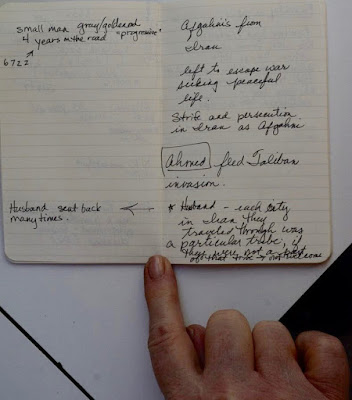 small man gray/goldenrod
4 years on the road "progressive"
6722
Husband sent back
many times.
Afgahni's from
Iran
left to escape war
seeking peaceful
life.
Strife and persecution
in Iran as Afgahni
Ahmed fled Taliban
invasion.
* Husband - each city
in Iran they
traveled through was
a particular tribe, if
they were not a part
of that tribe